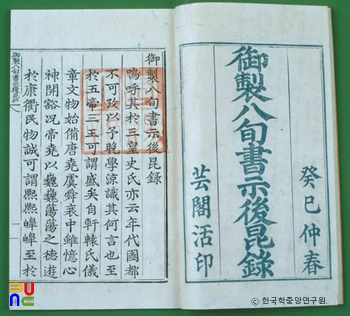 癸巳仲春
御製八旬書示後昆錄
芸閣活印
御製八旬書示後昆錄
嗚呼其於三皇史氏亦云年代國都
不可攷以予晩學涼識其何言也至
於五帝三王可謂盛矣自軒轅氏儀
章文物始備唐堯虞舜衷中雖憶心
神開豁況帝堯以巍巍蕩蕩之德遊
於康衢民物誠可謂熙熙皞皞至於
© 한국학중앙연구원.